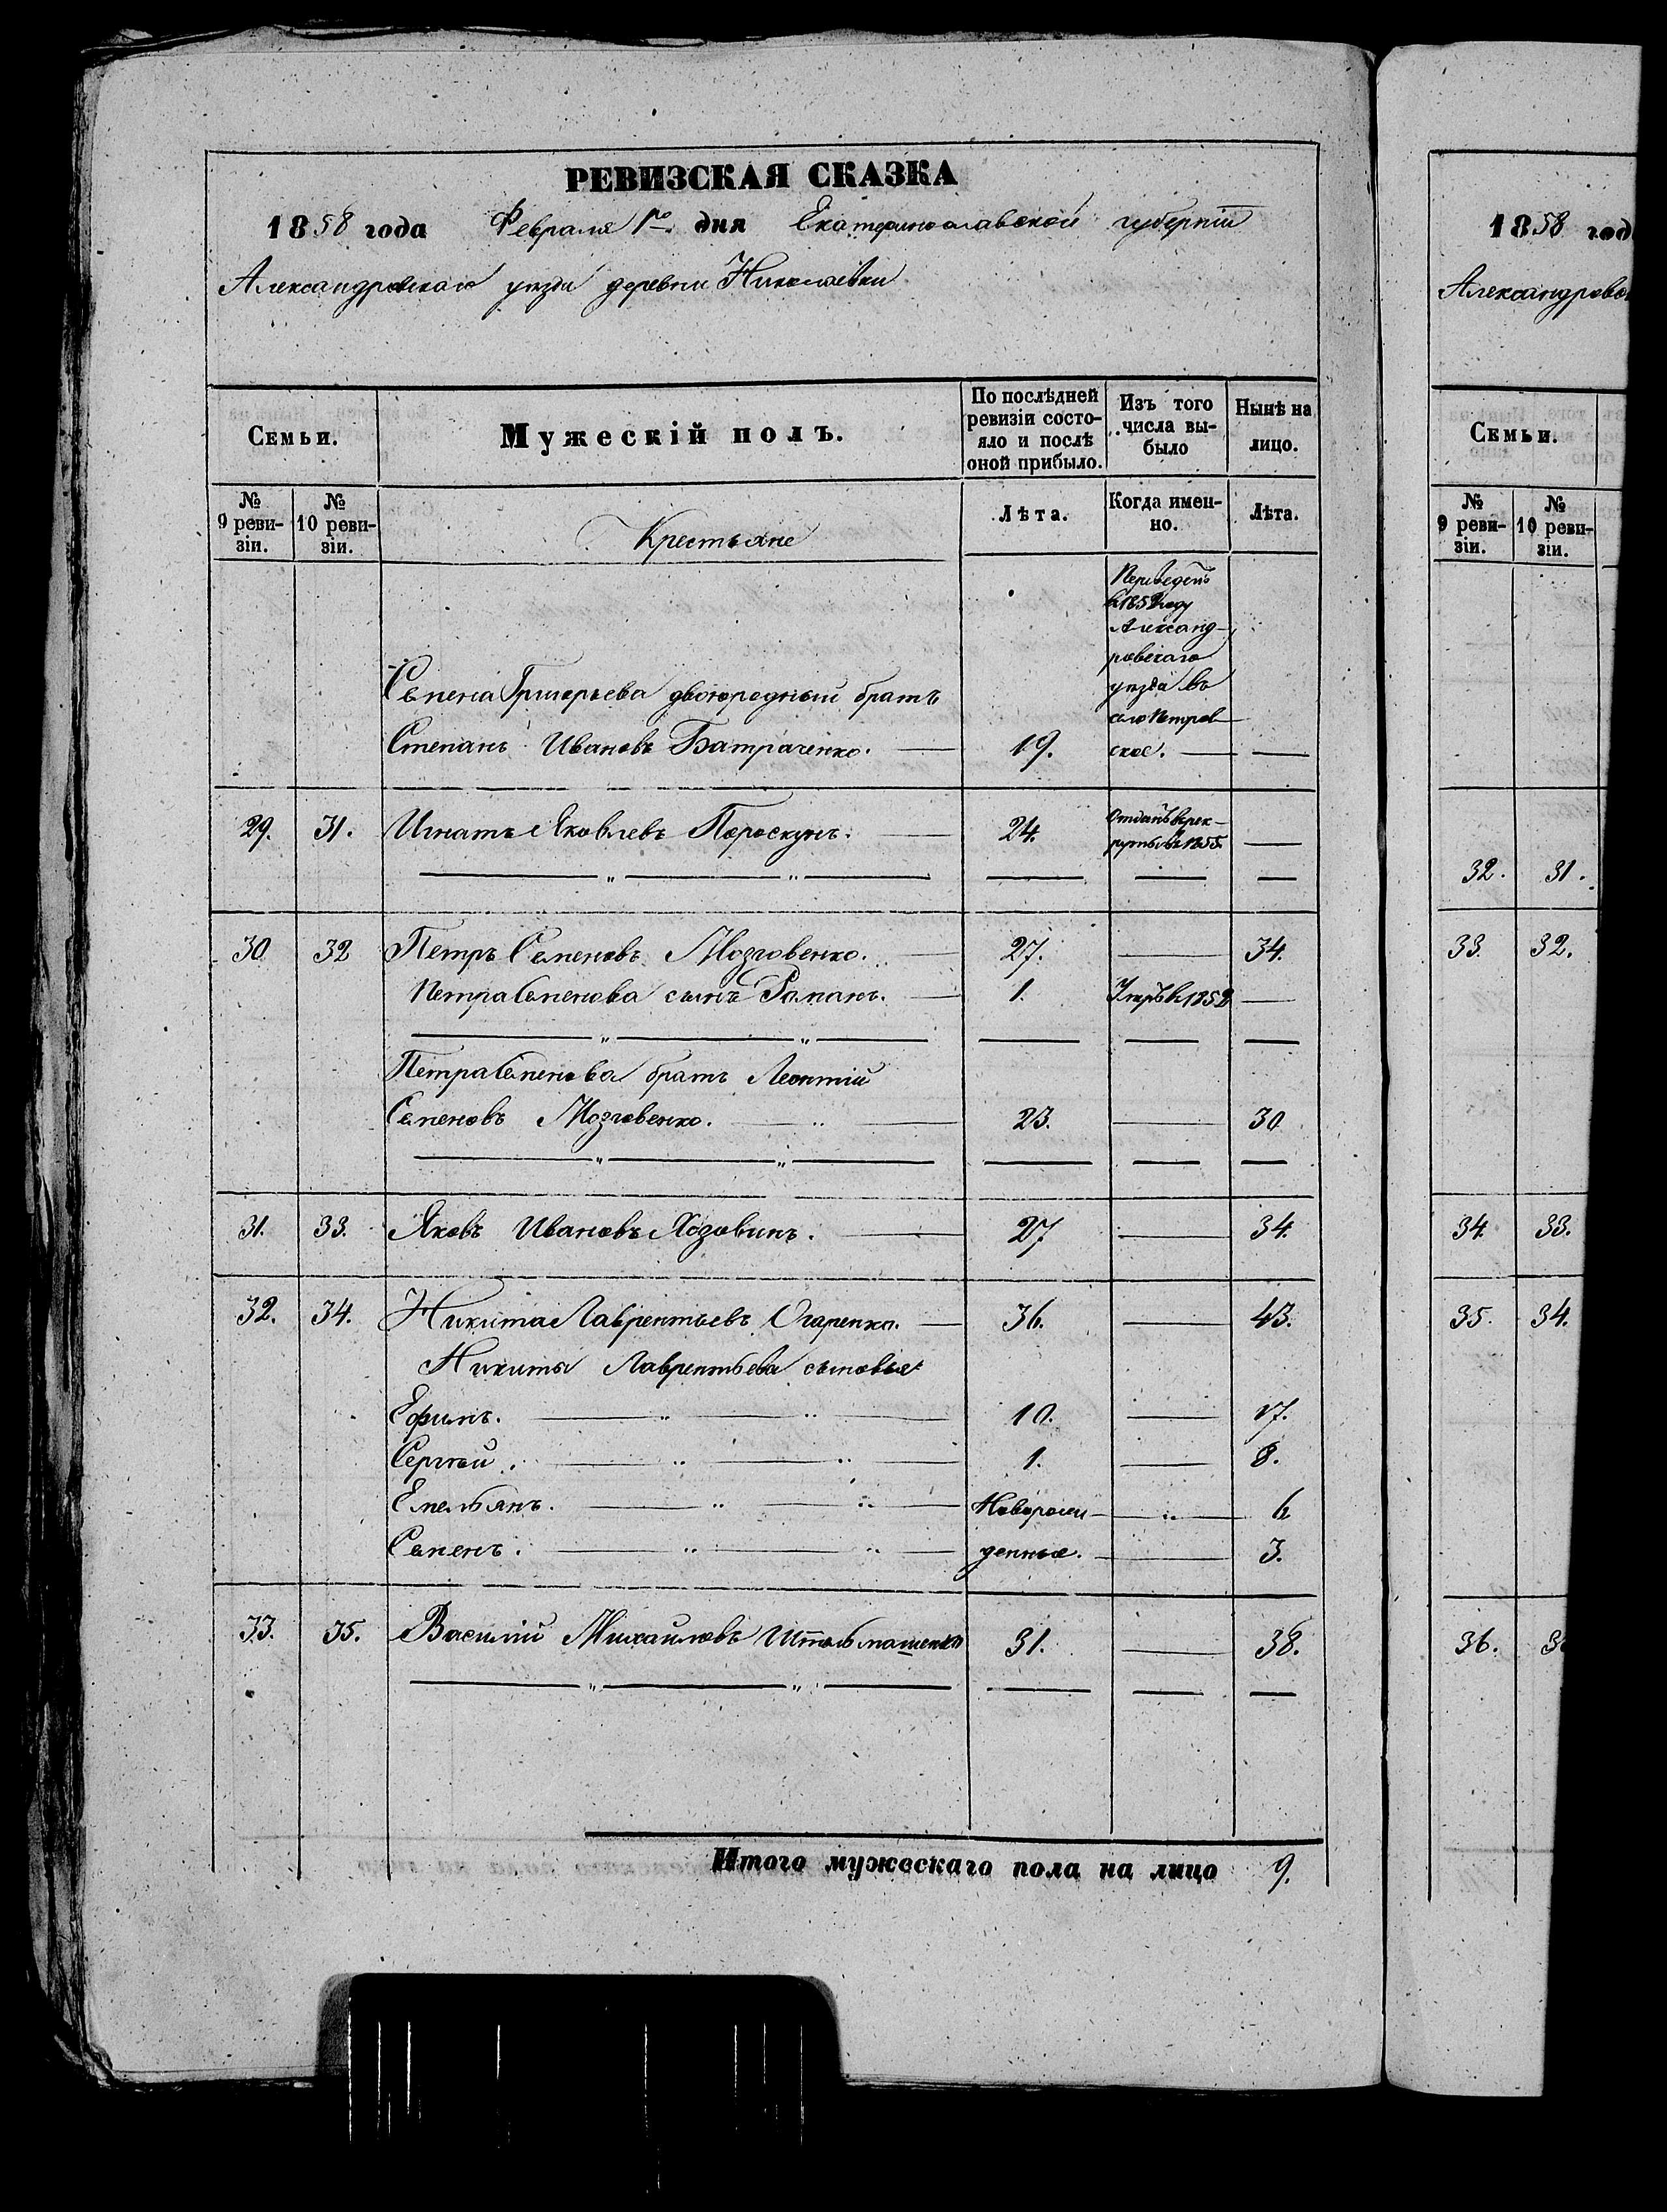 РЕВИЗСКАЯ СКАЗКА
1858 года Февраля 1го дня Екатеринославской губерніи
Александровскаго уѣзда деревни Николаевки
Семьи.
Мужескій полъ.
По послѣдней ревизіи состояло и послѣ оной прибыло.
Изъ того числа выбыло
Нынѣ на лицо.
№ 9 ревизіи.
№ 10 ревизіи.
Крестьяне
Лѣта.
Когда именно.
Лѣта.
Переведенъ
въ 1852 году
Александ-
ровскаго
Семена Григорьева двоюродный братъ уѣзда въ
село Петров-
Степанъ Ивановъ Батраченко. 19. ское.
29. 31. Игнатъ Яковлевъ Пороскунъ. 24. Отданъ въ рек-
руты въ 1855.
30 32 Петръ Семеновъ Мозговенко. 27. 34.
Петра Семенова сынъ Романъ. 1. Умръ въ 1852
Петра Семенова братъ Леонтій
Семеновъ Мозговенко. 23. 30
31. 33. Яковъ Ивановъ Хозовинъ. 27 34.
32. 34. Никита Лаврентьевъ Огаренко. 36. 43.
Никиты Лаврентьева сыновья
Ефимъ. 10. 17.
Сергѣй. 1. 8.
Емельянъ. Новорож- 6
Семенъ. денные. 3.
33. 35. Василій Михайловъ 31. 38.
Итого мужескаго пола на лицо 9.
1858 год
Александровск
Семьи.
№ 9 ревизіи.
№ 10 ревизіи.
32. 31.
33. 32.
34. 33.
35. 34.
36.